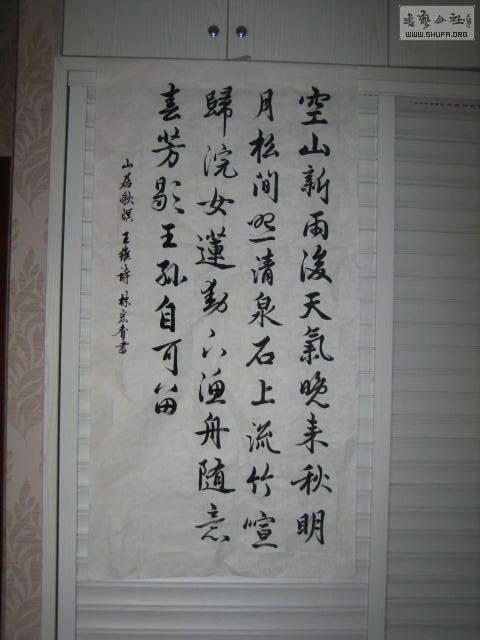 空山新雨後天氣晚来秋明
月松间照清泉石上流竹喧
歸浣女蓮動下渔舟随意
春芳歇王孙自可留
山居秋暝 王維詩 林書
書藝公社
WWW.SHUFA.ORG